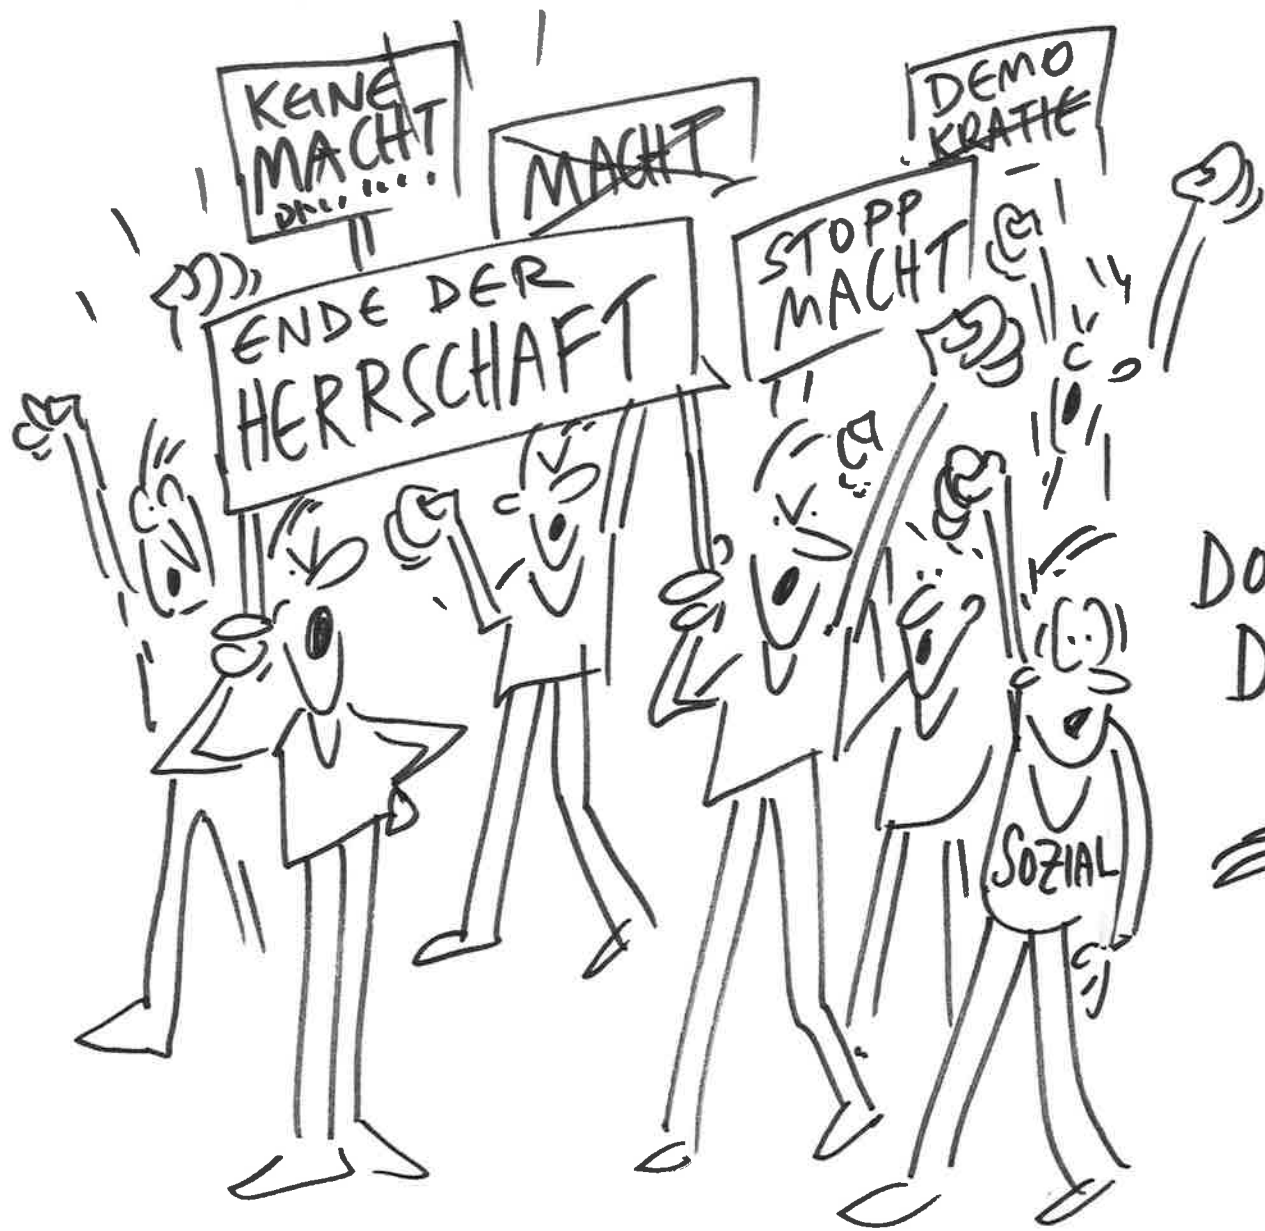 KEINE
MACHT
MACHT
DEMO
KRATIE
ENDE DER
HERRSCHAFT
STOPP
MACHT
SOZIAL